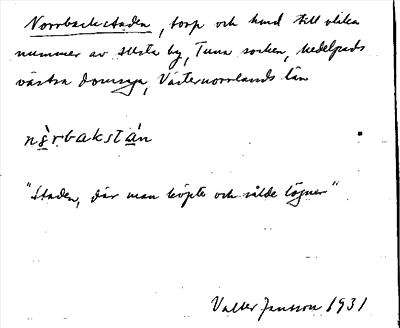 Norrbackstaden, torp och hmd till olika
nummer av Allsta by, Tuna socken, Medelpads
västra domsaga, Västernorrlands län
nòrbakstàn
"Staden, där man köpte och sålde lögner"
Valter Jansson 1931